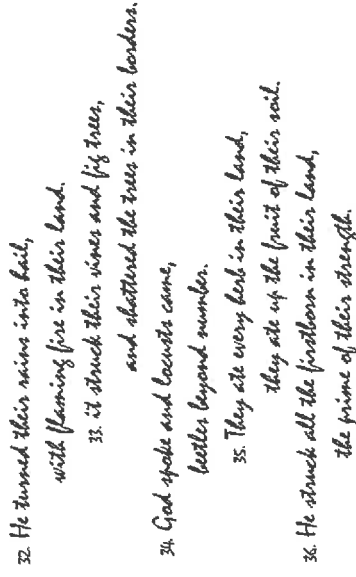 32. He turned their rains into hail,
with flaming fire in their land.
33. it struck their vines and fig trees,
and shattered the trees in their borders.
34. God spoke and locusts came,
beetles beyond number.
35. They ate every herb in their land,
they ate up the fruit of their soil.
36. He struck all the firstborn in their land,
the prime of their strength.